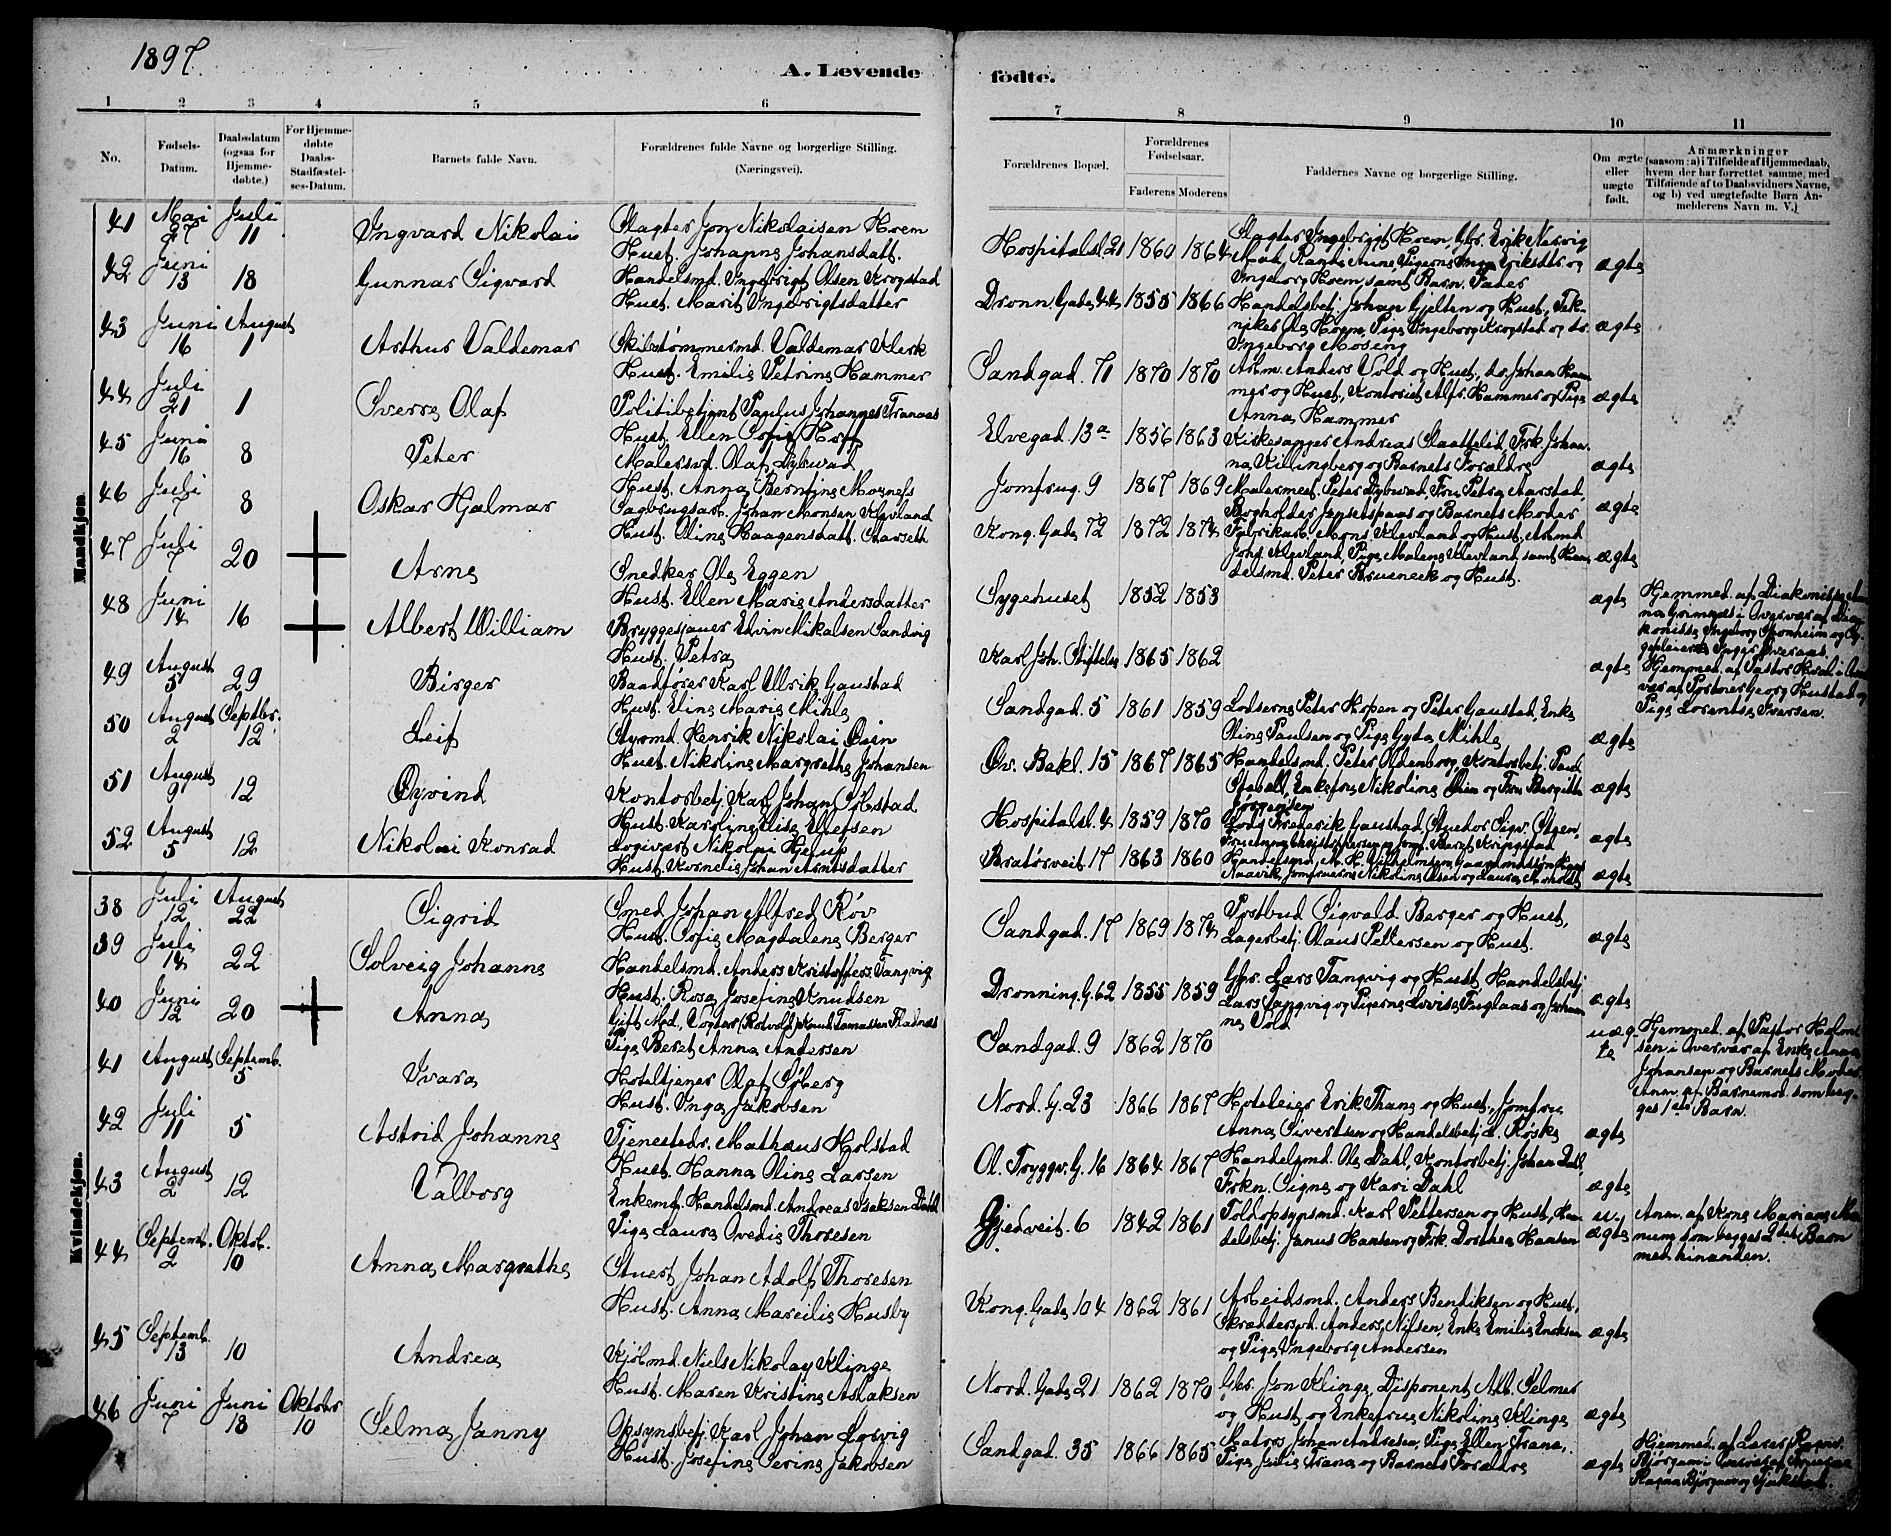 1897.
A. Levende fødte.
1 2 3 4 5 6 7 8 9 10 11
No.
Fødsels-Datum.
Daabsdatum (ogsaa for Hjemme-døbte.)
For Hjemme-døbte Daabs-Stadfæstel-ses-Datum.
Barnets fulde Navn.
Forældrenes fulde Navne og borgerlige Stilling. (Næringsvei).
Forældrenes Bopæl.
Forældrenes Fødselsaar.
Faderens Moderens
Faddernes Navne og borgerlige Stilling.
Om ægte eller uægte født.
Anmærkninger (saasom: a) i Tilfælde af Hjemmedaab, hvem der har forrettet samme, med Tilføiende af to Daabsvidners Navne, og b) ved uægtefødte Børn Anmelderens Navn m. V.)
Mandkjøn.
41 Mai 27 Juli 11 Ingvard Nikolai
Slagter Jon Nikolaisen Hoem
Hust. Johanne Johansdatt.
Hospitalsl. 21 1860 1864
Slagter Ingebrigt Hoem, Gbr. Erik Nervig
Mad. Rande Aune, Pigerne Inga Eriksdtr og
Ingeborg Hoem, samt Barn. Fader
ægte
42 Juni 13 18 Gunnar Sigvard
Handelsmd. Ingebrigt Olsen Krogstad
Hust. Marit Ingebrigtsdatter
Dronn. Gade 44 1855 1866
Handelsbetj. Johan Gjelten og Hust, Tek-
niker Ole Hoem, Pige Ingeborg Krogstad og do.
Ingeborg Mosing
ægte
43 Juni 16 August 1 Arthur Valdemar
Skibstømmermd. Valdemar Klerk
Hust. Emilie Petrine Hammer
Sandgad. 71 1870 1870
Arbm. Anders Vold og Hust, do. Johan Ham
mer og Hust, Kontorist Alfr. Hammer og Pige
Anna Hammer
ægte
44 Juli 21 1 Sverre Olaf
Politibetjent Paulus Johannes Tranaas
Hust. Ellen Sofie Hoff
Elvegad. 13a 1856 1863
Kirkesanger Andreas Slaattelid, Frk. Johan-
na Killingberg og Barnets Forældre
ægte
45 Juni 16 8 Peter
Malersvd. Olaf Dybwad
Hust. Anna Berntine Moenefs
Jomfrug. 9 1867 1869
Malermest. Peter Dybwad, Fru Petra Aarstad,
Bogholder Jens og Barnets Moder
ægte
46 Juli 7 8 Oskar Hjalmar
Sagbrugsarb. Johan Monsen Klevland
Hust. Oline Haagensdatt.
Kong. Gade 72 1872 1874
Fabrikarb. Mons Klevland og Hust, Arbmd
Johs. Klevland, Pige Malene Klevland samt Han
delsmd. Peter Brueneck og Hust.
ægte
47 Juli 7 20 Arne
Snedker Ole Eggen
Hust. Ellen Marie Andersdatter
Sygehuset 1852 1853
ægte
Hjemmed. af Diakonisse
Grimnes i Overvær af Dia-
konisse Ingeborg Tronheim og Sy-
gepleierske Inger Overaas.
48 Juni 14 16 Albert William
Bryggesjauer Edvin Mikalsen Sandvig
Hust. Petra
Karl Joh. Stiftelse 1865 1862
ægte
Hjemmed. af Pastor
vær af Portner Georg Hustad og
Pige Lorentse Iversen.
49 August 5 29 Birger
Baadfører Karl Ulrik Gaustad
Hust. Eline Marie Mihle
Sandgad. 5 1861 1859
Lodserne Peter Hopen og Peter Gaustad, Enke
Oline Paulsen og Pige Gyda Mihle
ægte
50 August 2 Septbr. 12 Leif
Styrmd. Henrik Nikolai Øien
Hust. Nikoline Margrethe Johansen
Øv. Bakl. 15 1867 1865
Handelsmd. Peter Oldenborg, Kontorbetj. Paul
Stabell, Enkefru Nikoline Øien og Fru Bergitte
Jørgensen
ægte
51 August 9 12 Øyvind
Kontorbetj. Karl Johan Sørstad
Hust. Karoline Elise Ellefsen
Hospitalsl. 4 1859 1870
Lods Frederik Gaustad, Student Sigv. Steen,
Fru Anna Christophersen og Jomf. Beret Kringstad
ægte
52 August 5 12 Nikolai Konrad
Logivært Nikolai Hjelup
Hust. Kornelie Johan Arntsdatter
Bratørveit. 17 1863 1860
Handelsmd. M. H. Vilhelmsen, Gaardmadssøn
Naavik, Jomfruerne Nikoline Olsen og Laura
ægte
Kvindekjøn.
38 Juli 12 August 22 Sigrid
Smed Johan Alfred Røv
Hust. Sofie Magdalene Berger
Sandgad. 17 1869 1874
Postbud Sigvald Berger og Hust,
Lagerbetj. Olaus Pettersen og Hust.
ægte
39 Juli 14 22 Solveig Johanne
Handelsmd. Anders Kristoffers. Tangvig
Hust. Rosa Josefine Knudsen
Dronning. G. 62 1855 1859
Gbr. Lars Tangvig og Hust, Handelsbetj
Lars Tangvig og Pigerne Lovise Fuglaas og Johan
ne Vold
ægte
40 Juni 12 20 Anna
Gift Md, Vogter (Rotvold) Knut Tomassen Fladnes
Pige Beret Anna Andersen
Sandgad. 9 1862 1870
uæg-
te
Hjemmed. af Pastor Holm
sen i Overvær af Enke Anna
Johansen og Barnets Moder
Anm. af Barnemod. som beg-
ges 1ste Barn.
41 August 1 Septemb. 5 Ivara
Hoteltjener Olaf Søberg
Hust. Inga Jakobsen
Nord. G. 23 1866 1867
Hoteleier Erik Thane og Hust, Jomfru
Anna Sivertsen og Handelsbetj. L. Røske
ægte
42 Juli 11 5 Astrid Johanne
Tjenestedr. Mathæus Holstad
Hust. Hanna Oline Larsen
Ol. Tryggv. G. 16 1864 1867
Handelsmd. Ole Dahl, Kontorbetj. Johan Dahl,
Frkn. Signe og Kari Dahl
ægte
43 August 2 12 Valborg
Enkemd. Handelsmd. Andreas Isaksen Dahl
Pige Laura Ovedie Thoresen
Gjedveit. 6 1842 1861
Toldopsynsmd. Karl Pettersen og Hust, Han
delsbetj. Janus Hansen og Frk. Dorthea Hansen
u.
ægte
Anm. af Kone
num som begges 2det Barn
med hinanden.
44 Septemb. 2 Oktob. 10 Anna Margrethe
Stuert Johan Adolf Thoresen
Hust. Anna Mareilie Husby
Kong. Gade 104 1862 1861
Arbeidsmd. Anders Bendiksen og Hust,
Skrædersvd. Anders Nilsen, Enke Emilie Eriksen
og Pige Ingeborg Andersen
ægte
45 Septemb. 13 10 Andrea
Kjølmd. Niels Nikolay Klinge
Hust. Maren Kristine Aslaksen
Nord. Gade 21 1862 1870
Gbr. Jon Klinge, Disponent Axb. Selmer
og Hust og Enkefru Nikoline Klinge
ægte
46 Juni 7 Juni 18 Oktober 10 Selma Janny
Opsynsbetj. Karl Johan Lorvig
Hust. Josefine Serine Jakobsen
Sandgad. 35 1866 1865
Matros Johan Andresen, Pige Ellen Trana,
Pige Julie Trana og Barnets Forældre
ægte
Hjemmed. af Læser
Bjørgum i Overvær af
Ragna Bjørgum og